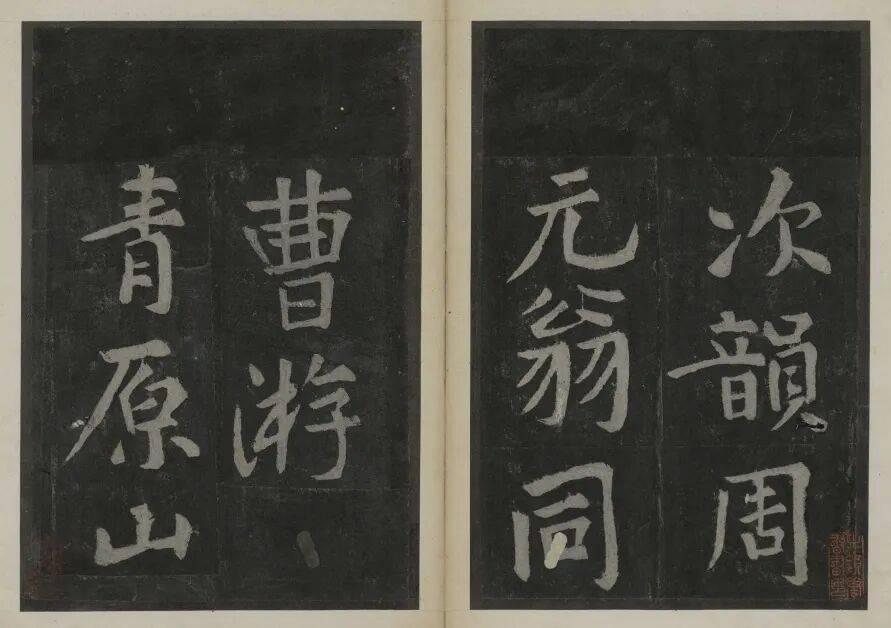 次韻周
元翁同
曹游
青原山